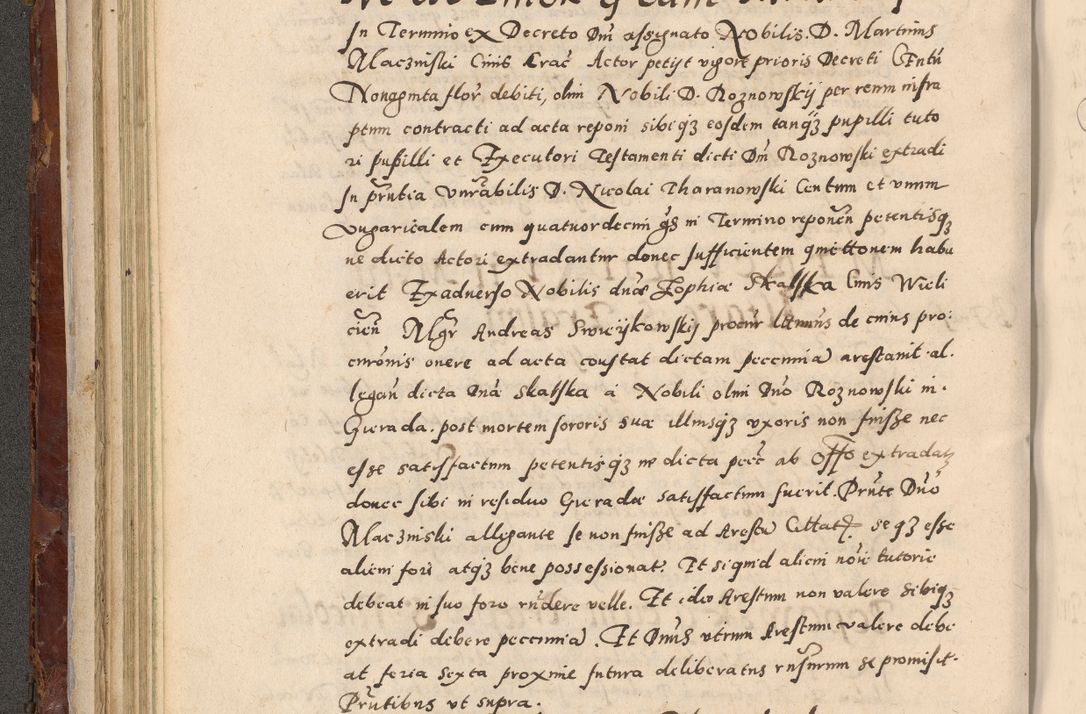 In Termino ex Decreto Dni assignato Nobilis. D. Martinus
Maczinski Civis Crac Actor petijt vigore prioris Decreti Centu
Nongenta flor debiti, olim Nobili D. Roznowskij per renm infra
ptum contracti ad acta reponi sibiq3 eosdem tanq3 pupilli tuto
ri pupilli et Executori Testamenti dicti Dni Roznowski extradi
In pñtia Vnrabilis D. Nicolai Tharanowski Centum et vnum
Vngaricalem cum quatuordecim gs in Termino reponen petentisq3
ne dicto Actori extradantur donec sufficientem qmittonem habu
erit Exadverso Nobilis dnae Zophiae Skalska Civis Wieli
cien Mgr Andreas Swieijkowskij procur de cuius pro:
curonis onere ad acta constat dictam peccunia arestavit al.
legan dicta Dna Skalska a Nobili olim Dno Roznowski in.
Gierada. post mortem sororis suae illiusq3 vxoris non fuisse nec
esse satisfactum petentisq3 ne dicta pecc ab offo extradat
donec sibi in residuo Gieradae satisfactum fuerit. Pñte Dno
Maczinski allegante se non fuisse ad Arestu Cittat. seq3 esse
alieni fori atq3 bene possessionat. Et si quid alieni noie tutorio
debeat in suo foro rñdere velle. Et ideo Arestum non valere sibiq3
extradi debere peccunia. Et Dnus vtrum Arestum valere debe
at feria sexta proxime futura deliberatus rñsurum se promisit.
Prñtibus vt supra.